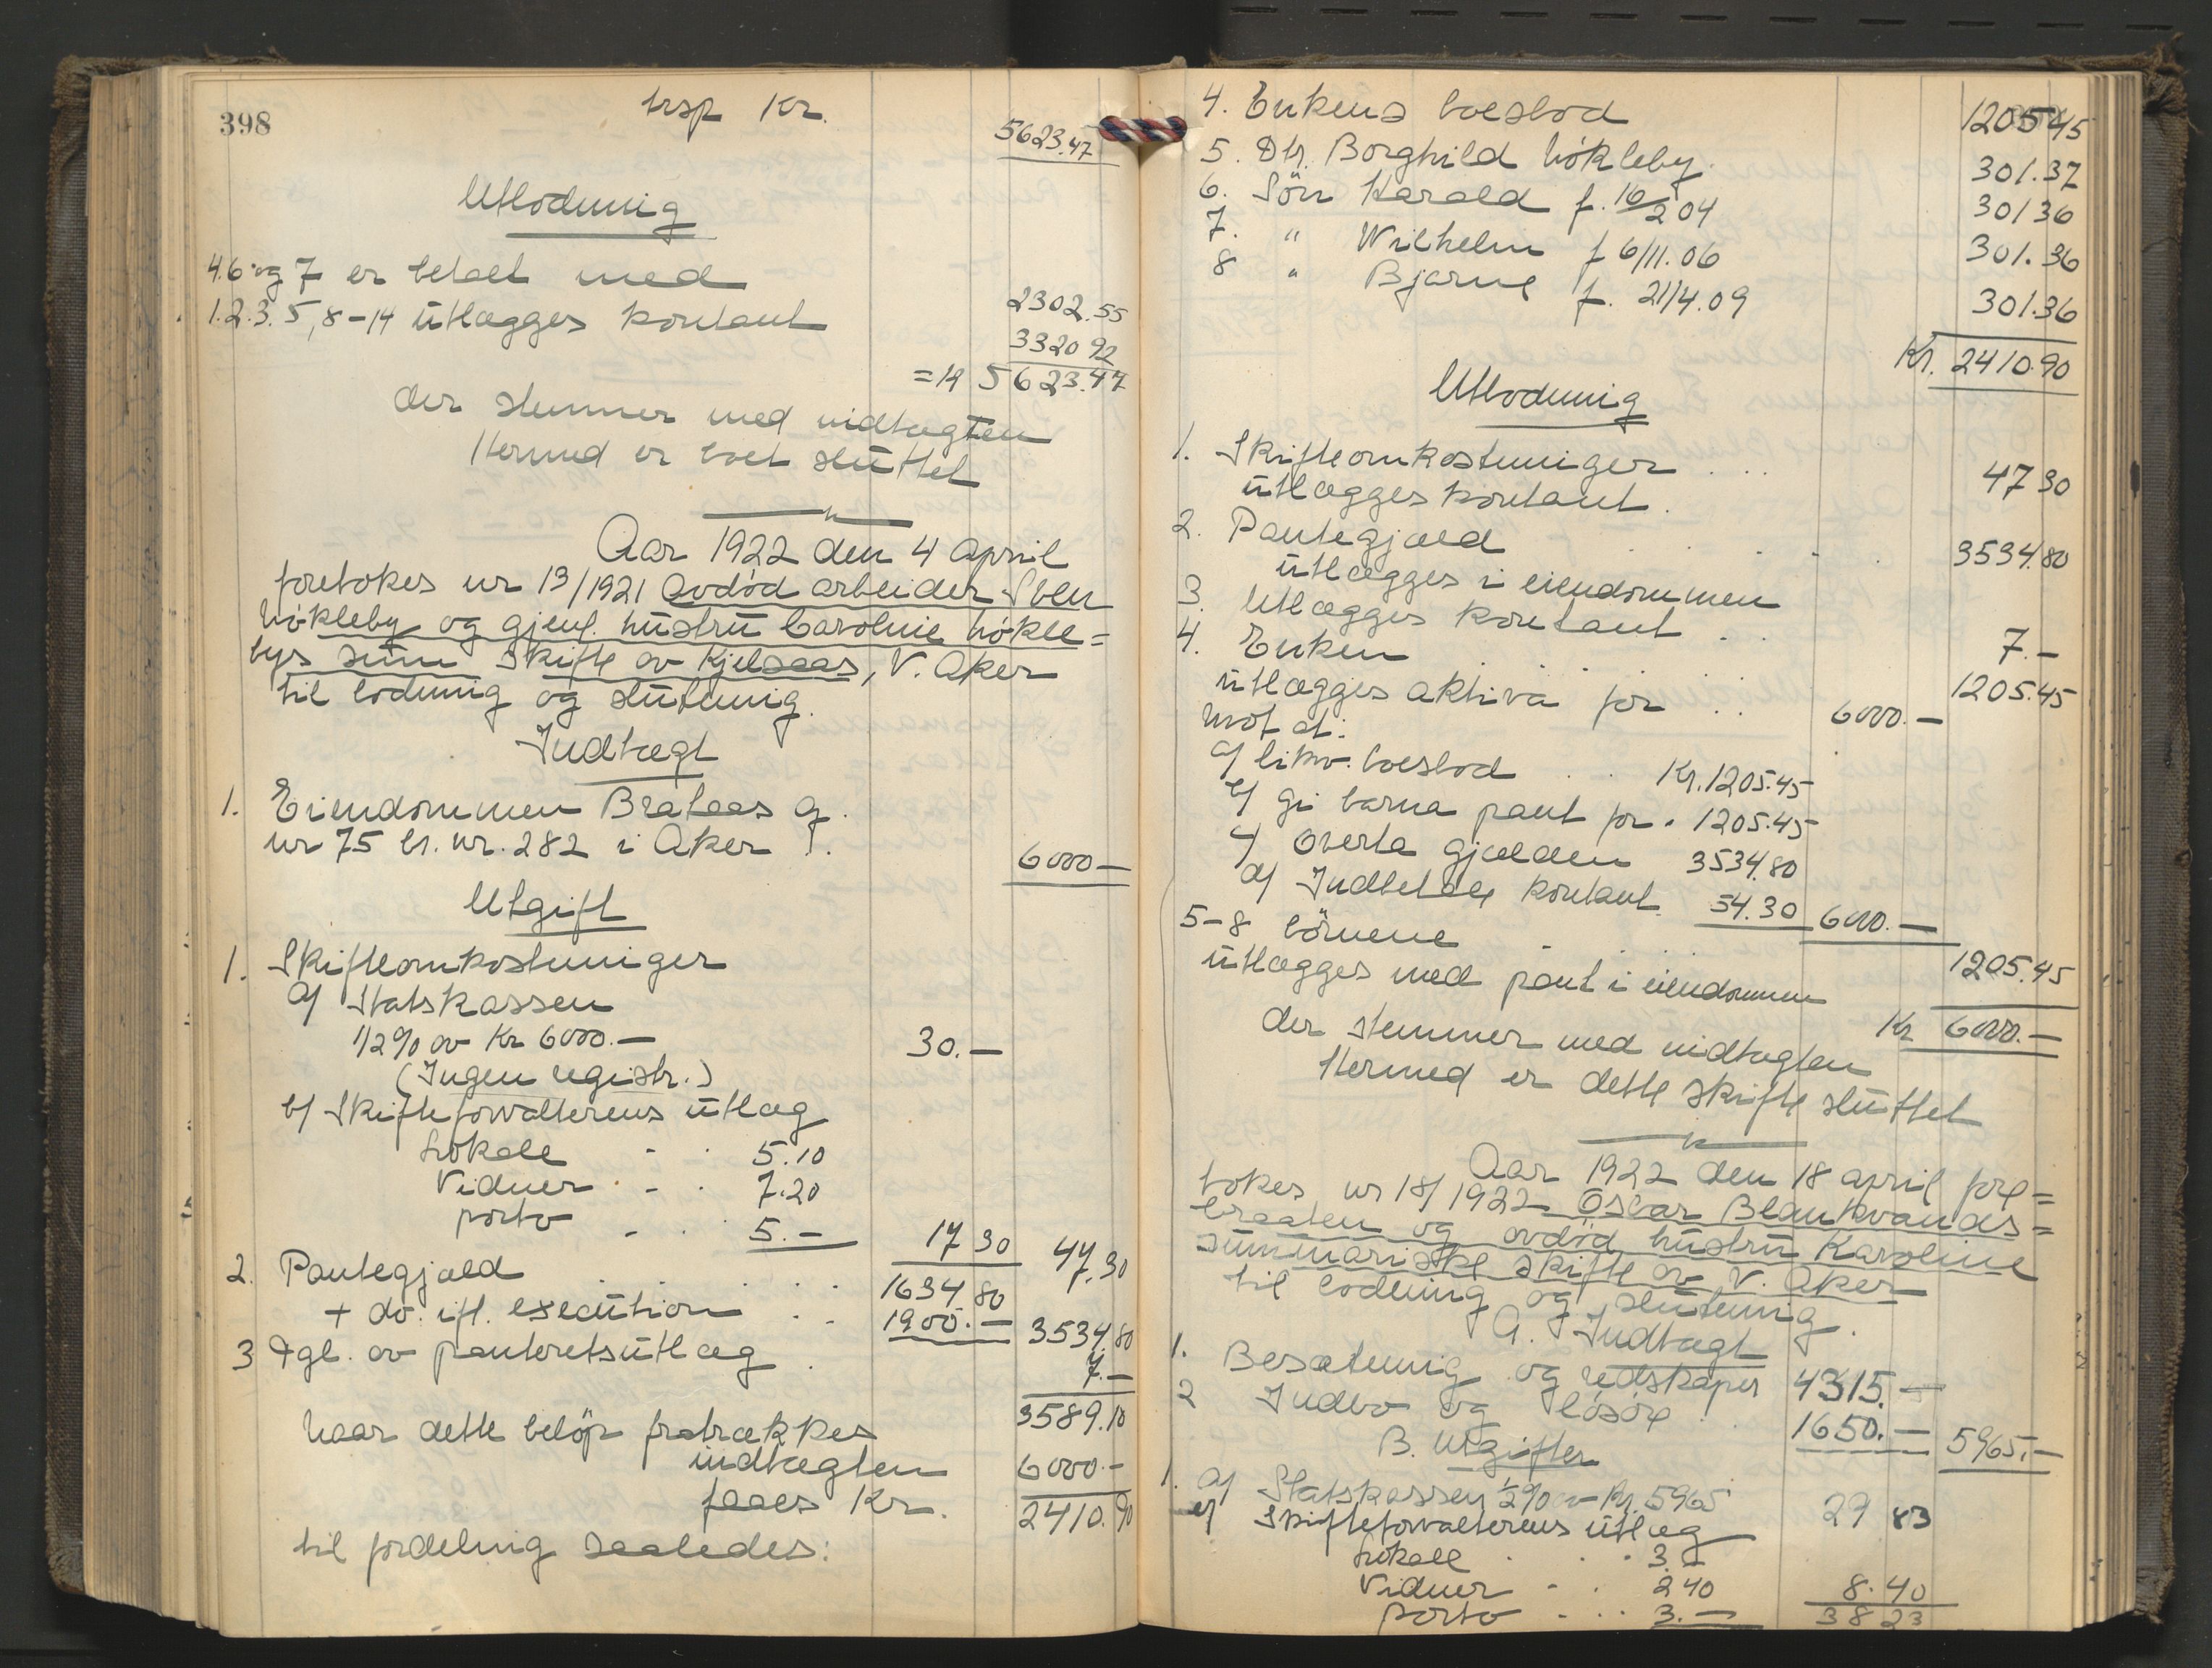 398
trsp Kr. 5623.47
Utlodning
4.6 og 7 er betalt med 2302.55
1.2.3.5, 8-14 utlægges kontant 3320 92
= Kr 5623.47
der stemmer med indtægten
Hermed er boet sluttet
Aar 1922 den 4 april
foretokes nr 13/1921 Avdød arbeider Sven
Løkleby og gjenl. hustru Caroline Løkle=
bys sum skifte av Kjelsaas, V. Aker
til lodning og slutning.
Indtægt
1. Eiendommen Brataas g.
nr 75 br. nr. 282 i Aker 6000 —
Utgift
1. Skifteomkostninger
a/ Statskassen
1/2% av Kr 6000.— 30.—
(Ingen registr.)
b/ Skifteforvalterens utlæg
Lokale 5.10
Vidner 7.20
porto 5.— 17 30 47.30
2. Pantegjæld 1634 80
+ do. ifl. execution 1900.— 3534.80
3 Dgl. av panteretsutlæg 7.—
3589.10
Naar dette beløp fratrækkes
indtægten 6000.—
faaes Kr. 2410.90
til fordeling saaledes:
4. Enkens boeslod 1205 45
5. Dtr. Borghild Løkleby. 301.37
6. Søn Harald f. 16/2 04 301 36
7. " Wilhelm f 6/11.06 301.36
8 " Bjarne f. 21/4.09 301.36
Kr. 2410.90
Utlodning
1. Skifteomkostninger 47 30
utlægges kontant.
2. Pantegjæld 3534.80
utlægges i eiendommen
3. Utlægges kontant 7.—
4. Enken 1205.45
utlægges aktiva for 6000.—
mot at:
a/ likv. boeslod Kr. 1205.45
b/ gi barna pant for " 1205.45
c/ overta gjælden 3534.80
d/ Indbetale kontant 54.30 6000.—
5-8 børnene 1205.45
utlægges med pant i eiendommen
Kr 6000.—
der stemmer med indtægten
Hermed er dette skifte sluttet
Aar 1922 den 18 april fore=
tokes nr 18/1922 Oscar Blankvands=
braaten og avdød hustru Karoline
summariske skifte av V. Aker
til lodning og slutning.
A. Indtægt
1. Besætning og redskaper 4315.—
2 Indbo og løsøre 1650.— 5965.—
B. Utgifter
1. a/ Statskassen 1/2% av Kr. 5965 29 83
b/ Skifteforvalterens utlæg
Lokale 3.—
Vidner 2 40
porto 3.— 8.40
38 23